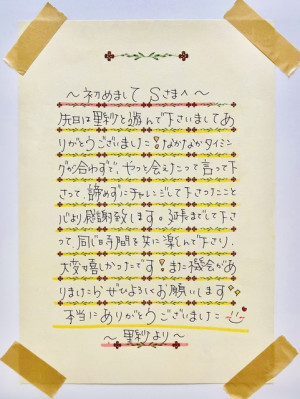 ～初めまして Sさまへ～
先日は里紗と遊んで下さいましてあ
りがとうございました!なかなかタイミン
グが合わずで、やっと会えたって言って下
さって、諦めずにチャレンジして下さったこと
心より感謝致します。延長までして下さ
って、同じ時間を共に楽しんで下さり、
大変嬉しかったです!また機会があ
りましたらぜひよろしくお願いします
本当にありがとうございました
～里紗より～